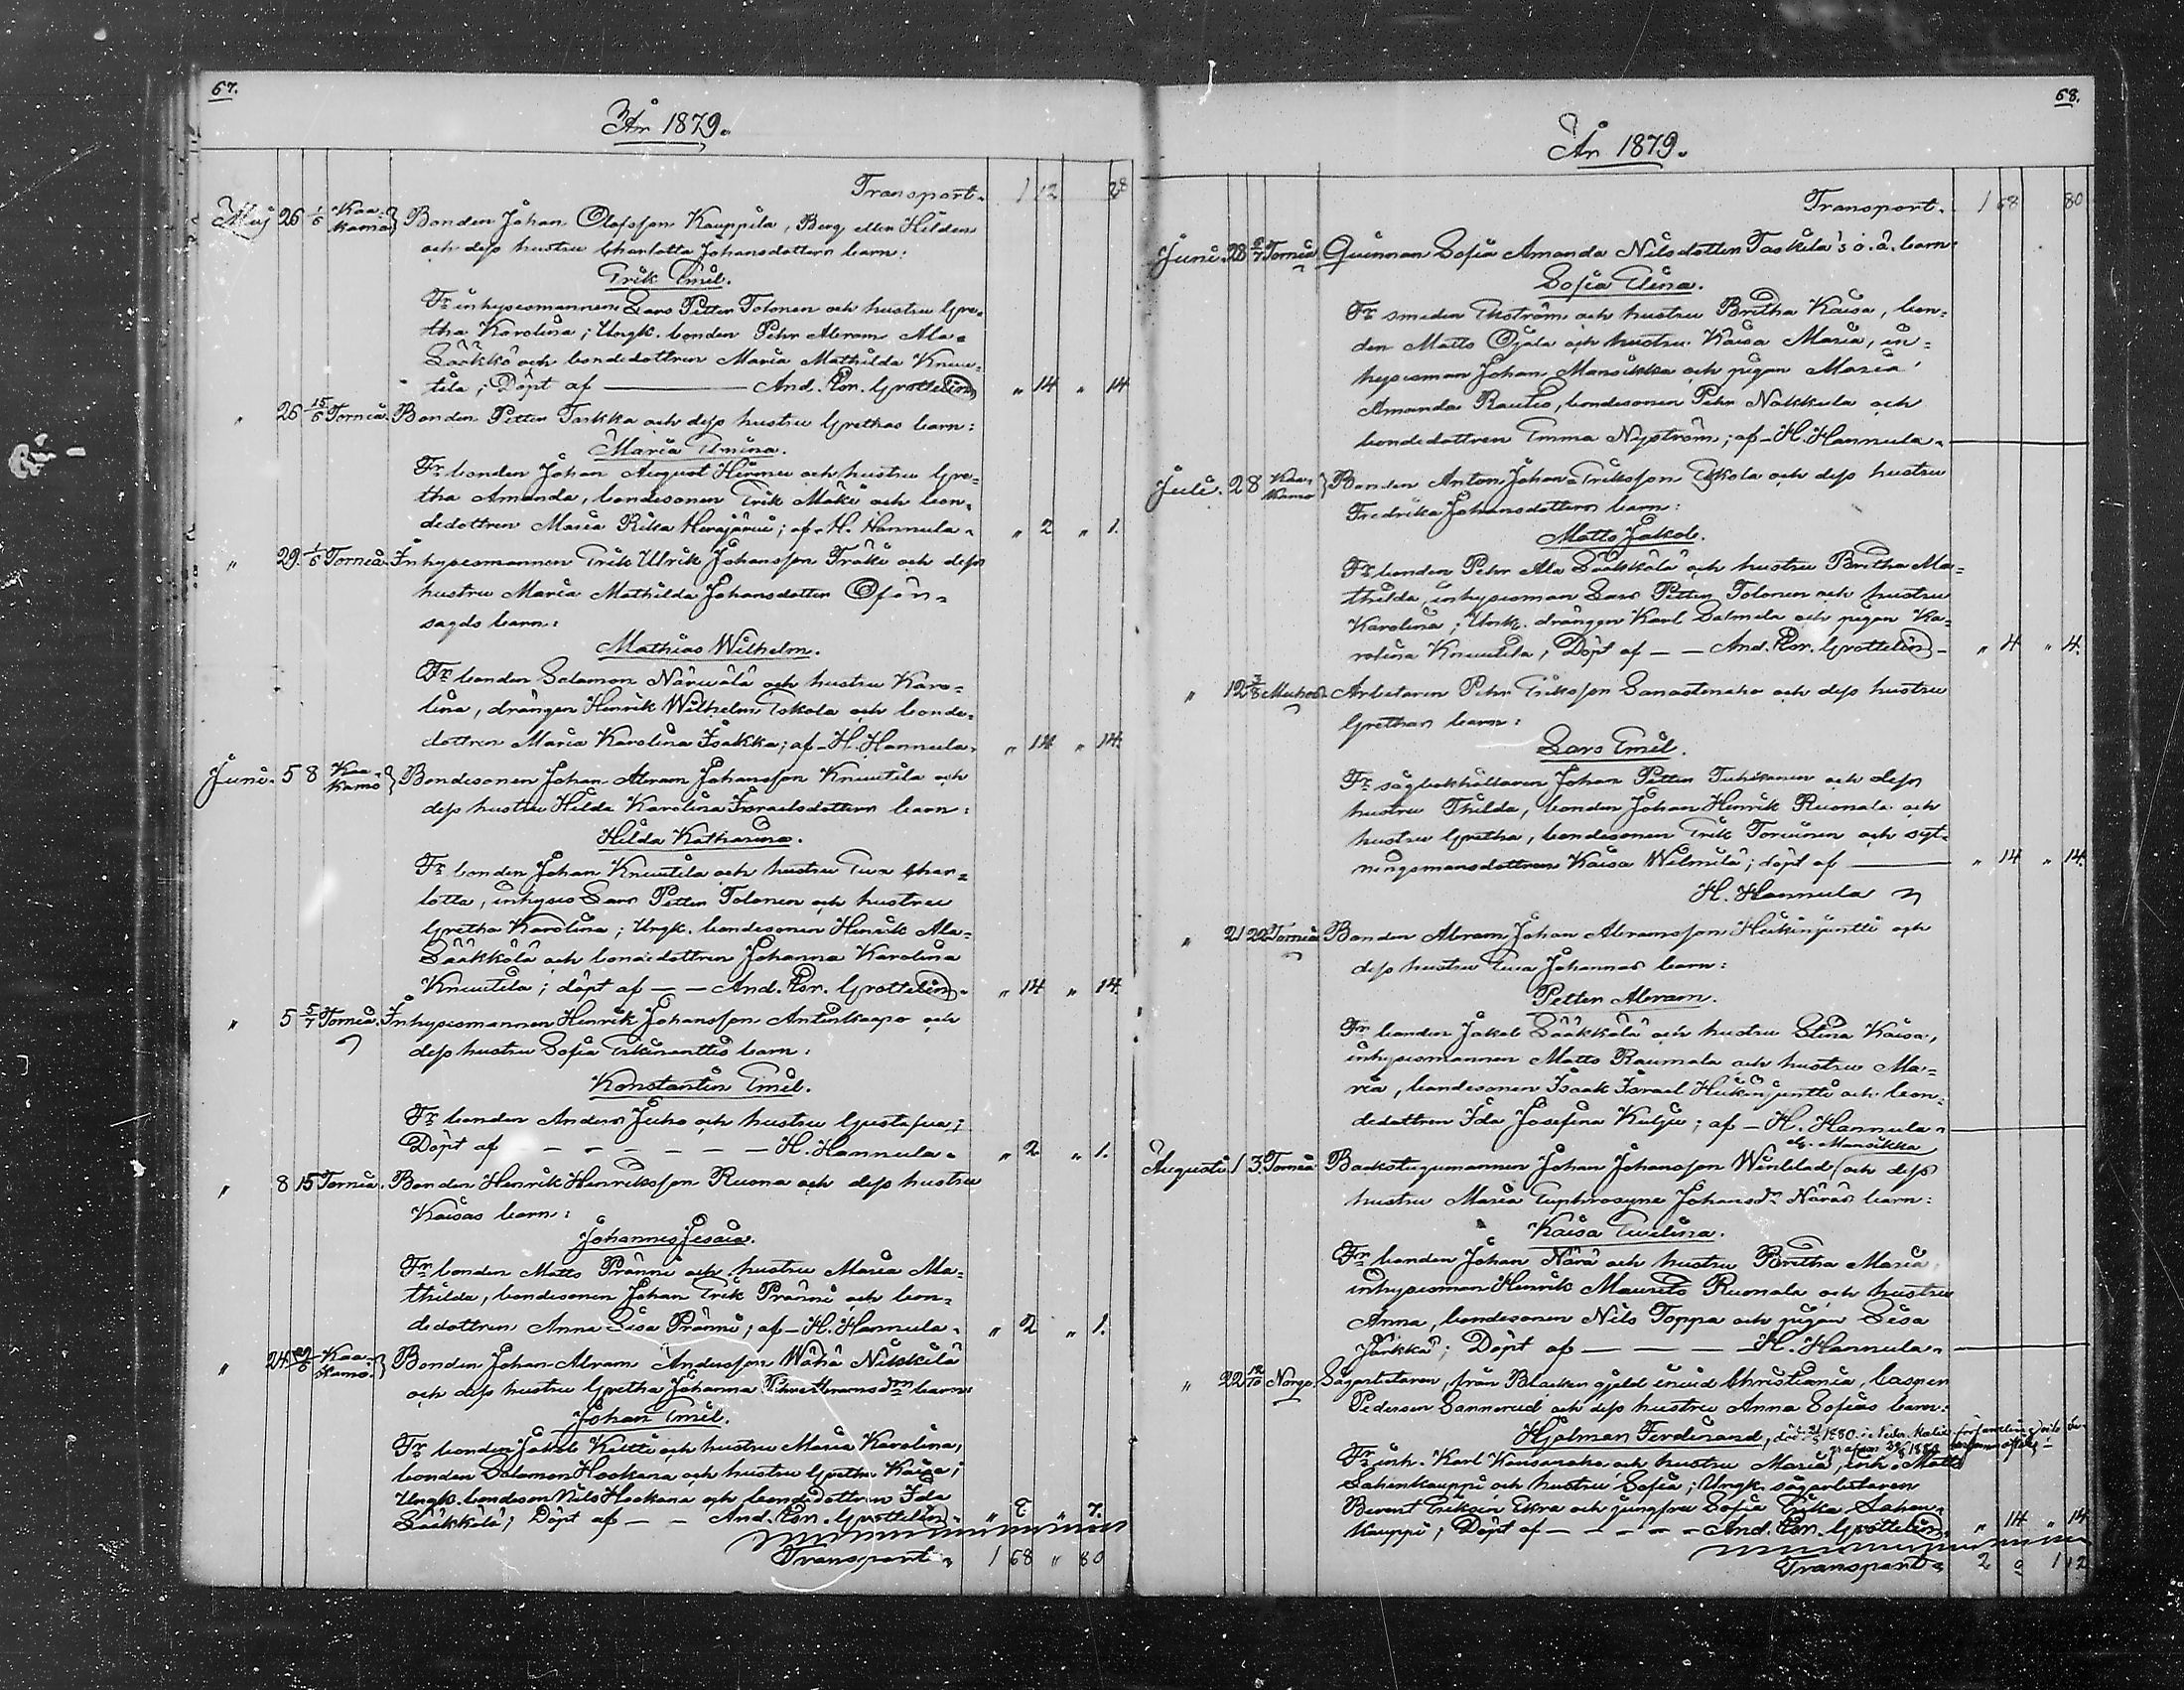 67.
År 1879.
Transport. 1 12 28
Maj 26 1/6 Kaa-kamo Bonden Johan Olofsson Kauppila, Berg eller Hilden
och dess hustru Charlotta Johansdotters barn:
Erik Emil.
Fr inhysesmannen Lars Petter Tolonen och hustru Gre-
tha Karolina; Ungk. bonden Pehr Abram Ala-
Sääkkö och bondedottren Maria Mathilda Knuu-
tila; Döpt af And. Cor. Grottelin " 14 " 14
" 26 15/6 Torneå. Bonden Petter Tarkka och dess hustru Grethas barn:
Maria Emina.
Fr bonden Johan August Hirsma och hustru Gre-
tha Amanda, bondesonen Erik Mäki och bon-
dedottren Maria Rika Herajärvi; af H. Hannula. " 2 " 1.
" 29. 1/6 Torneå. Inhysesmannen Erik Ulrik Johansson Träki och dess
hustru Maria Mathilda Johansdotter Oför-
sagds barn:
Mathias Wilhelm.
Fr bonden Salamon Närwälä och hustru Karo-
lina, drängen Henrik Wilhelm Eskola och bonde-
dottren Maria Karolina Isakka; af H. Hannula. " 14 " 14.
Juni. 5 8 Kaa-kamo Bondesonen Johan Abram Johansson Knuutila och
dess hustru Hilda Karolina Israelsdotters barn:
Hilda Katharina.
Fr bonden Johan Knuutila och hustru Eva Char-
lotta, inhyses Lars Petter Tolonen och hustru
Gretha Karolina; Ungk. bondesonen Henrik Ala-
Sääkkölä och bondedottren Johanna Karolina
Knuutila; döpt af And. Cor. Grottelin. " 14 " 14.
" 5 5/7 Torneå. Inhysesmannen Henrik Johansson Antinkaapo och
dess hustru Sofia Erkinanttis barn:
Konstantin Emil.
Fr bonden Anders Juho och hustru Gustafva;
Döpt af H. Hannula. " 2 " 1.
" 8 15 Torneå. Bonden Henrik Henriksson Ruona och dess hustru
Kaisas barn:
Johannes Jesaia.
Fr bonden Matts Pränni och hustru Maria Ma-
thilda, bondesonen Johan Erik Pränni och bon-
dedottren Anna Lisa Pränni; af H. Hannula. " 2 " 1.
" 24. Kaa-kamo. Bonden Johan Abram Andersson Wähä Nikkilä
och dess hustru Gretha Johanna barn:
Johan Emil.
Fr bonden Jakob Kultti och hustru Maria Karolina,
bonden Salamon Hookana och hustru Gretha Kaisa;
Ungk. bondeson Nils Hookana och bondedottren Ida
Sääkkölä; Döpt af And. Cor. Grottelin. " " 7.
Transport. 1 68 " 80
68.
År 1879.
Transport. 1 68 80
Juni. 28 6/7 Torneå Quinnan Sofia Amanda Nilsdotter Taskila's o. ä. barn:
Sofia Elina.
Fr smeden Ekström och hustru Britha Kaisa, bon-
den Matts Ojala och hustru Kaisa Maria, in-
hysesman Johan Mansikka och pigan Maria
Amanda Rautio, bondesonen Pehr Nokkala och
bondedottren Emma Nyström; af H. Hannula.
Juli. 2 8 Kaa-kamo Bonden Anton Johan Eriksson Eskola och dess hustru
Fredrika Johansdotters barn:
Matts Jakob.
Fr bonden Pehr Ala Sääkkölä och hustru Britha Ma-
thilda, inhysesman Lars Petter Tolonen och hustru
Karolina; Unk. drängen Karl Salmela och pigan Ka-
rolina Knuutila, Döpt af And. Cor. Grottelin " 4 " 4.
" 12 3/8 Muhos. Arbetaren Pehr Eriksson Sanastenaho och dess hustru
Grethas barn:
Lars Emil.
Fr sågbokhållaren Johan Petter Tuhkanen och dess
hustru Thilda, bonden Johan Henrik Ruonala och
hustru Gretha, bondesonen Erik Torvinen och syt-
ningsmansdottren Kaisa Wilmilä; döpt af " 14 " 14.
H. Hannula
" 21 22 Torneå Bonden Abram Johan Abramsson Heikinjuntti och
dess hustru Eva Johannas barn:
Petter Abram.
Fr bonden Jakob Sääkkölä och hustru Stina Kaisa,
inhysesmannen Matts Raumala och hustru Ma-
ria, bondesonen Isaak Israel Heikinjuntti och bon-
dedottren Ida Josefina Kulju; af H. Hannula.
Augusti. 1 3. Torneå Backstugumannen Johan Johansson Winblad elg. Mansikka och dess
hustru Maria Euphrosyne Johansdr Näräs barn:
Kaisa Evelina.
Fr bonden Johan Närä och hustru Britha Maria,
inhysesman Henrik Maurits Ruonala och hustru
Anna, bondesonen Nils Toppa och pigan Lisa
Jürkkä; Döpt af H. Hannula.
" 22 12/10 Norge. Sågarbetaren, från Blacken gjeld invid Christiania, Casper
Pedersen Sannerud och dess hustru Anna Sofias barn:
Hjalmar Ferdinand, död 1880 i Neder Kalix församling
Fr inh. Karl Kansanaho och hustru Maria, inh. Matts
Sahankauppi och hustru Sofia; Ungk. sågarbetaren
Berent Eriksen Ekra och jungfru Sofia Erika Sahan-
kauppi; Döpt af And. Cor. Grottelin. " 14 " 14
Transport. 2 1 12